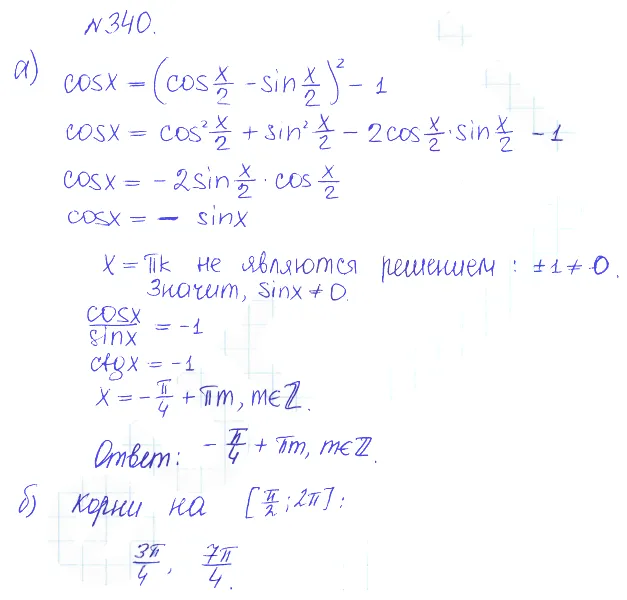 №340.
а) cosx = (cos x/2 - sin x/2)² - 1
cosx = cos² x/2 + sin² x/2 - 2cos x/2 · sin x/2 - 1
cosx = -2sin x/2 · cos x/2
cosx = - sinx
x = πk не являются решением: ±1 ≠ 0.
Значит, sinx ≠ 0.
cosx/sinx = -1
ctgx = -1
x = -π/4 + πm, m∈ℤ.
Ответ: -π/4 + πm, m∈ℤ.
б) Корни на [π/2; 2π]:
3π/4, 7π/4.